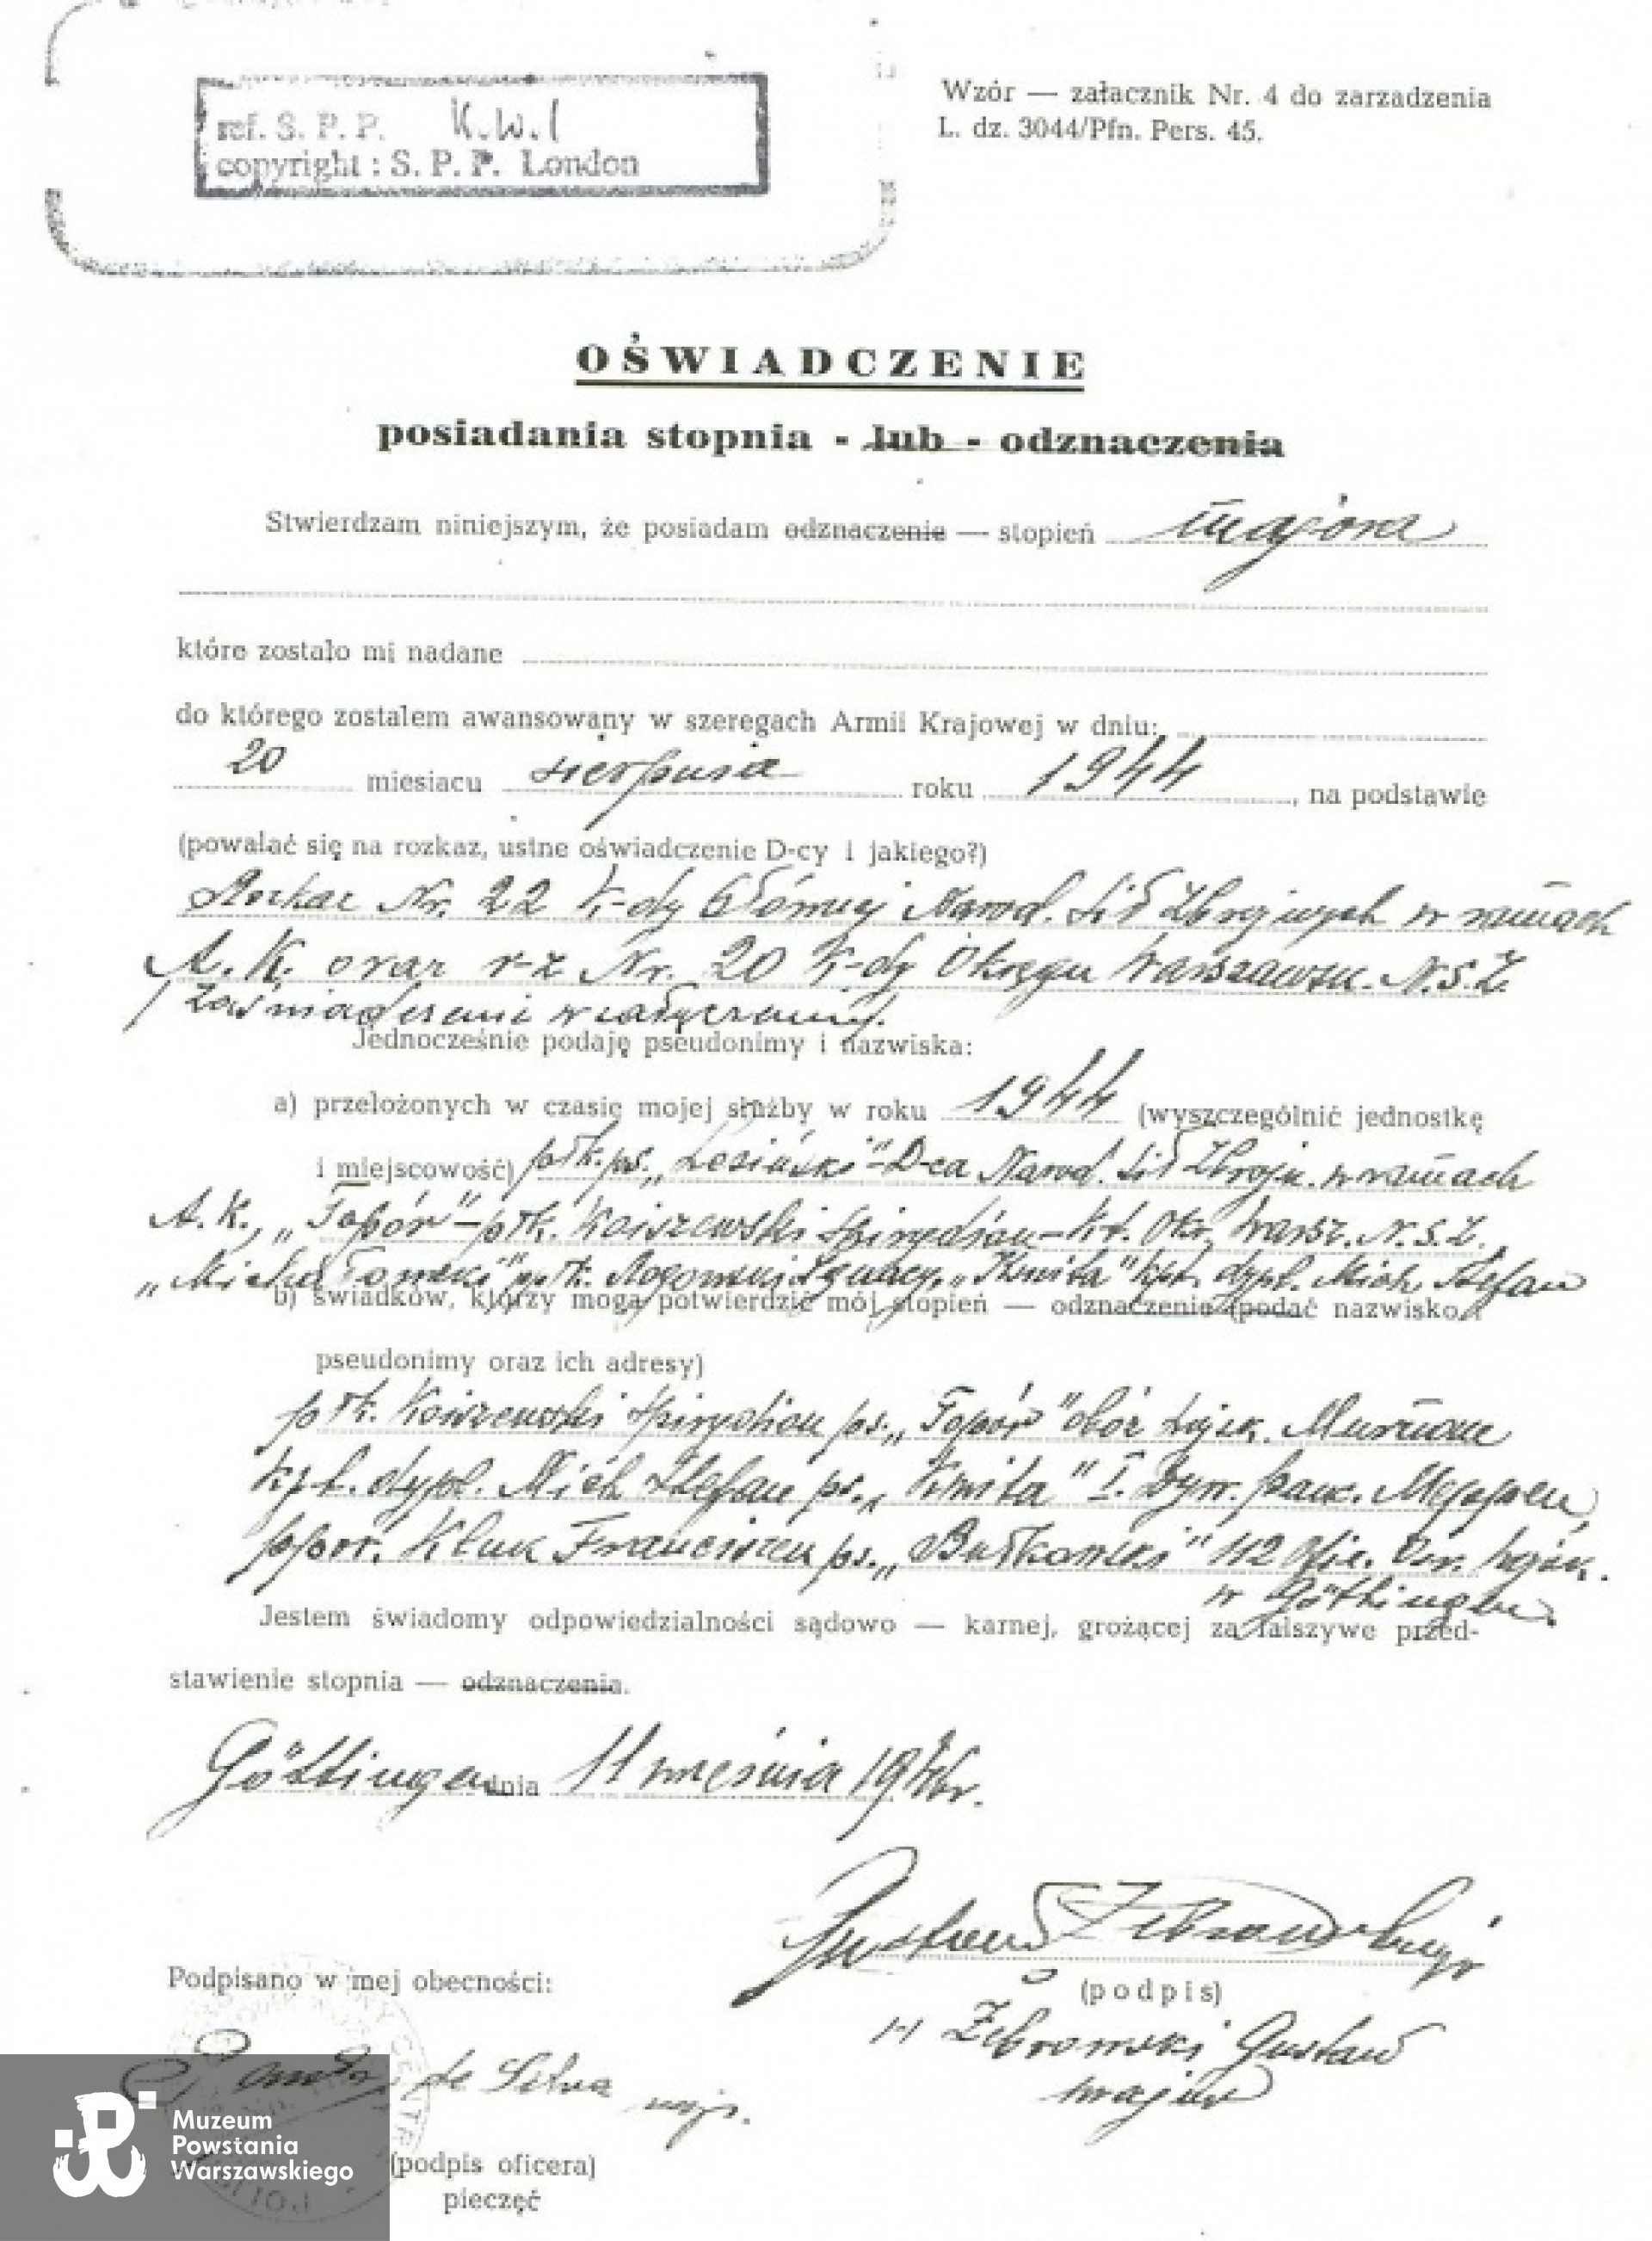 ref. S. P. P. K.W.1
copyright : S. P. P. London
Wzór — załacznik Nr. 4 do zarzadzenia
L. dz. 3044/Pfn. Pers. 45.
OŚWIADCZENIE
posiadania stopnia - lub - odznaczenia
Stwierdzam niniejszym, że posiadam odznaczenie — stopień majora
które zostało mi nadane
do którego zostałem awansowany w szeregach Armii Krajowej w dniu:
20 miesiacu sierpnia roku 1944, na podstawie
(powałać się na rozkaz, ustne oświadczenie D-cy i jakiego?)
Rozkaz Nr. 22 K-dy Głównej Narod. Sił Zbrojnych w ramach
A. K. oraz r-z Nr. 20 K-dy Okręgu Warszawsk. N.S.Z.
Jednocześnie podaję pseudonimy i nazwiska:
a) przełożonych w czasię mojej służby w roku 1944 (wyszczególnić jednostkę
i miejscowość) płk. ps. „Lesiński" - D-ca Narod. Sił Zbrojn. w ramach
A. K., „Topór" – płk. Koiszewski Spirydion – Kt. Okr. Warsz. N.S.Z.
„Michał Tomski" Rogowski „Kmita" kpt. dypl. Mich Stefan
b) świadków, którzy mogą potwierdzić mój stopień — odznaczenie (podać nazwisko
pseudonimy oraz ich adresy)
płk. Koiszewski Spirydion ps. „Topór" obóz wojsk. Murnau
kpt. dypl. Mich Stefan ps. „Kmita" I. Dyw. panc. Meppen
ppor. Kluk Franciszek ps. „Bułkowski" 112
w Göttingen.
Jestem świadomy odpowiedzialności sądowo — karnej, grożącej za fałszywe przed-
stawienie stopnia — odznaczenia.
Göttingen dnia 11 września 1946r.
Gustaw Żebrowski mjr
(podpis)
Podpisano w mej obecności:
Żebrowski Gustaw
major
de Silva mjr.
(podpis oficera)
pieczęć
Muzeum
Powstania
Warszawskiego